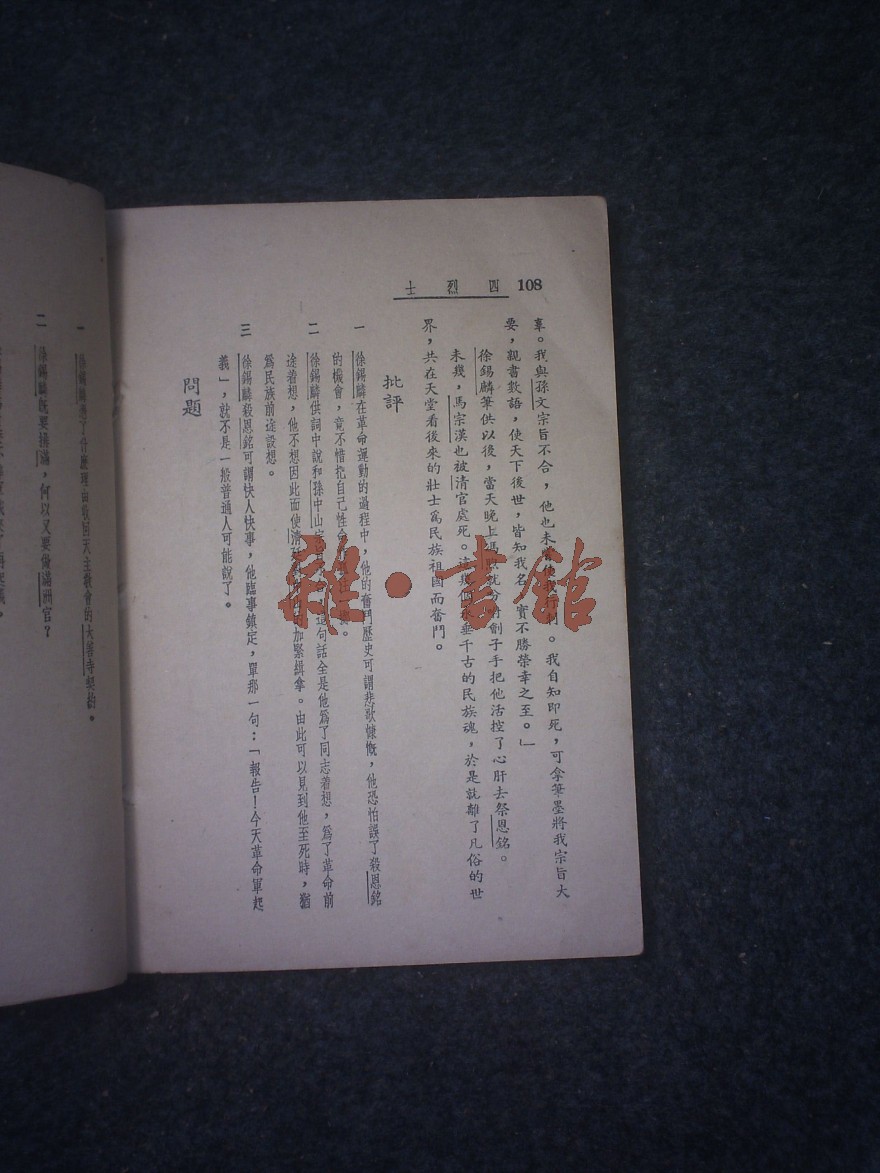 108
四烈士
辜。我與孫文宗旨不合，他也未
。我自知即死，可拿筆墨將我宗旨大
要，親書數語，使天下後世，皆知我名，實不勝榮幸之至。」
徐錫麟筆供以後，當天晚上馮煦就分付劊子手把他活挖了心肝去祭恩銘。
未幾，馬宗漢也被清官處死。這幾個永垂千古的民族魂，於是就離了凡俗的世
界，共在天堂看後來的壯士爲民族祖國而奮鬥。
批評
一　徐錫麟在革命運動的過程中，他的奮鬥歷史可謂悲歌慷慨，他恐怕誤了殺恩銘
的機會，竟不惜把自己性命
二　徐錫麟供詞中說和孫中山
這句話全是他爲了同志着想，爲了革命前
途着想，他不想因此而使清
加緊緝拿。由此可以見到他至死時，猶
爲民族前途設想。
三　徐錫麟殺恩銘可謂快人快事，他臨事鎮定，單那一句：「報告！今天革命軍起
義」，就不是一般普通人可能說了。
問題
一　徐錫麟
什麼理由收回天主教會的大善寺契約。
二　徐錫麟既要排滿，何以又要做滿洲官？
雜·書館